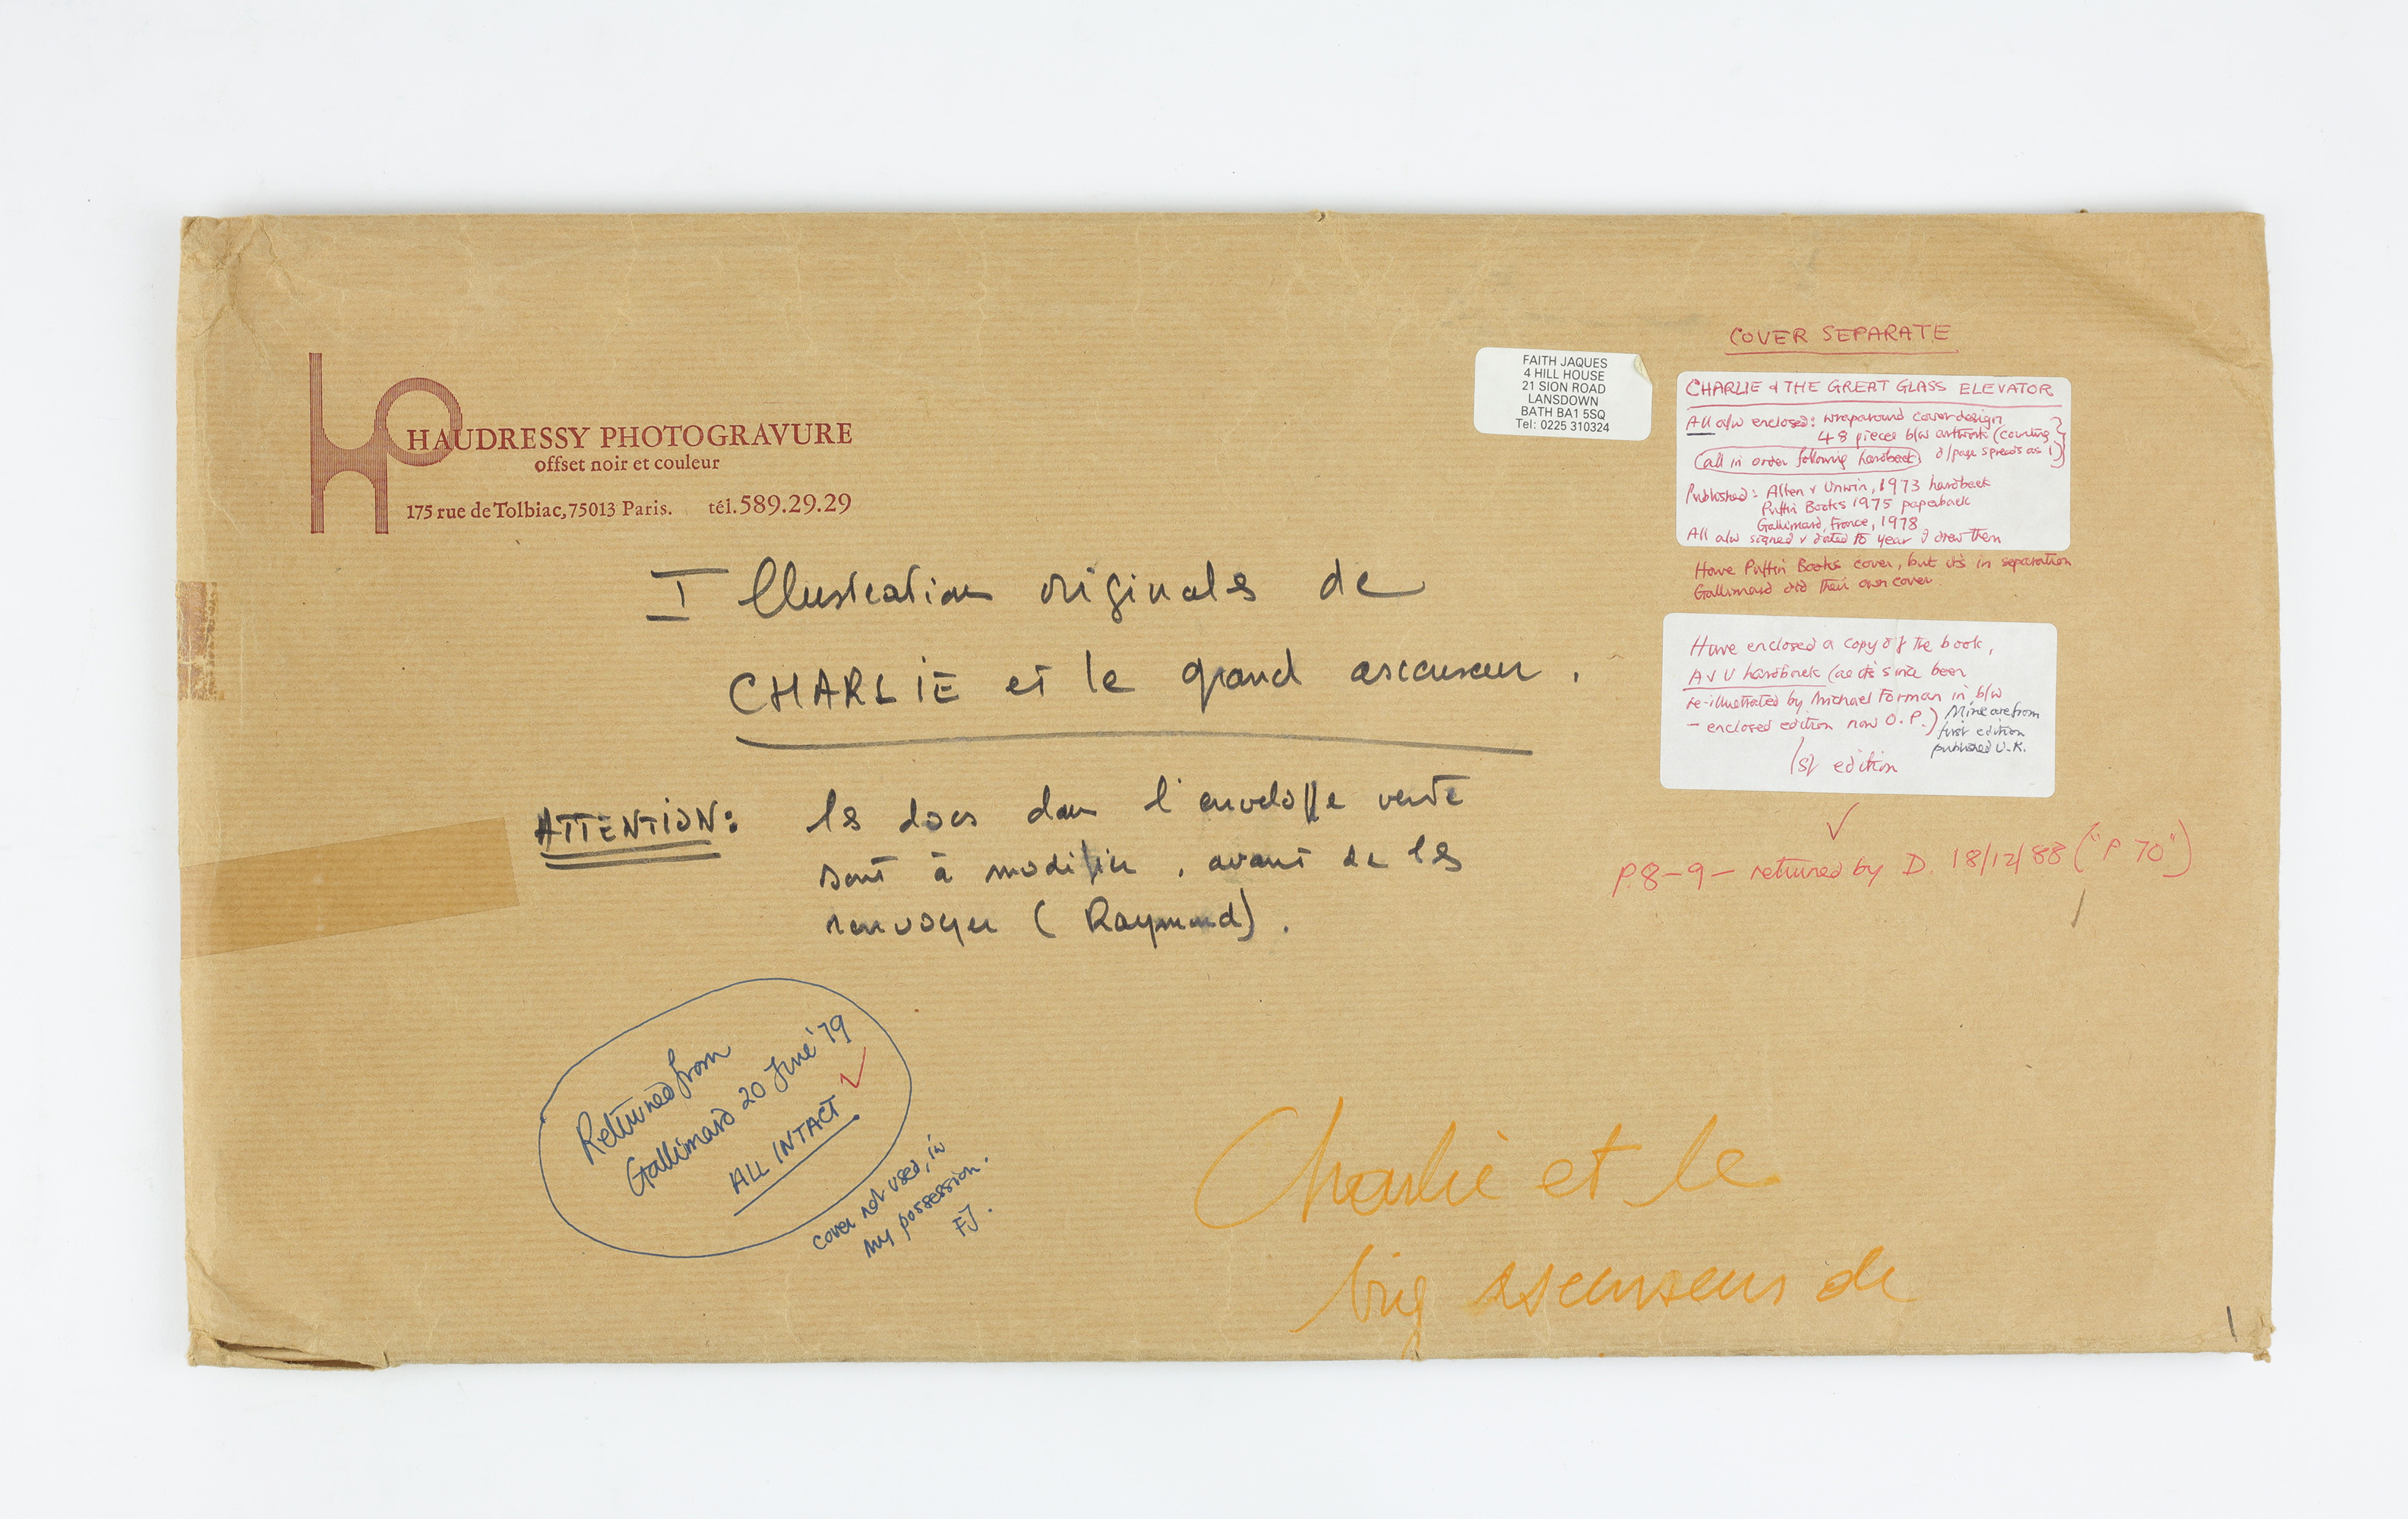 HAUDRESSY PHOTOGRAVURE
offset noir et couleur
175 rue de Tolbiac, 75013 Paris. tél. 589.29.29
FAITH JAQUES
4 HILL HOUSE
21 SION ROAD
LANSDOWN
BATH BA1 5SQ
Tel: 0225 310324
COVER SEPARATE
CHARLIE & THE GREAT GLASS ELEVATOR
All a/w enclosed: wraparound cover design,
48 pieces b/w artwork (counting
(all in order following hardback) d/page spreads as 1)
Published: Allen & Unwin, 1973 hardback
Puffin Books 1975 paperback
Gallimard, France, 1978
All a/w signed & dated to year I drew them
Have Puffin Books cover, but it's in separation
Gallimard did their own cover
Have enclosed a copy of the book,
A & U hardback (as it's since been
re-illustrated by Michael Forman in b/w
- enclosed edition now O.P.) Mine are from
first edition
published U.K.
1st edition
P.8-9 - returned by D. 18/12/88 ("P 70")
Illustration originals de
CHARLIE et le grand ascenseur.
ATTENTION: les docs dans l'enveloppe verte
sont à modifier, avant de les
renvoyer (Raymond).
Returned from
Gallimard 20 June '79
ALL INTACT
cover not used, in
my possession.
FJ.
Charlie et le
big ascenseur de